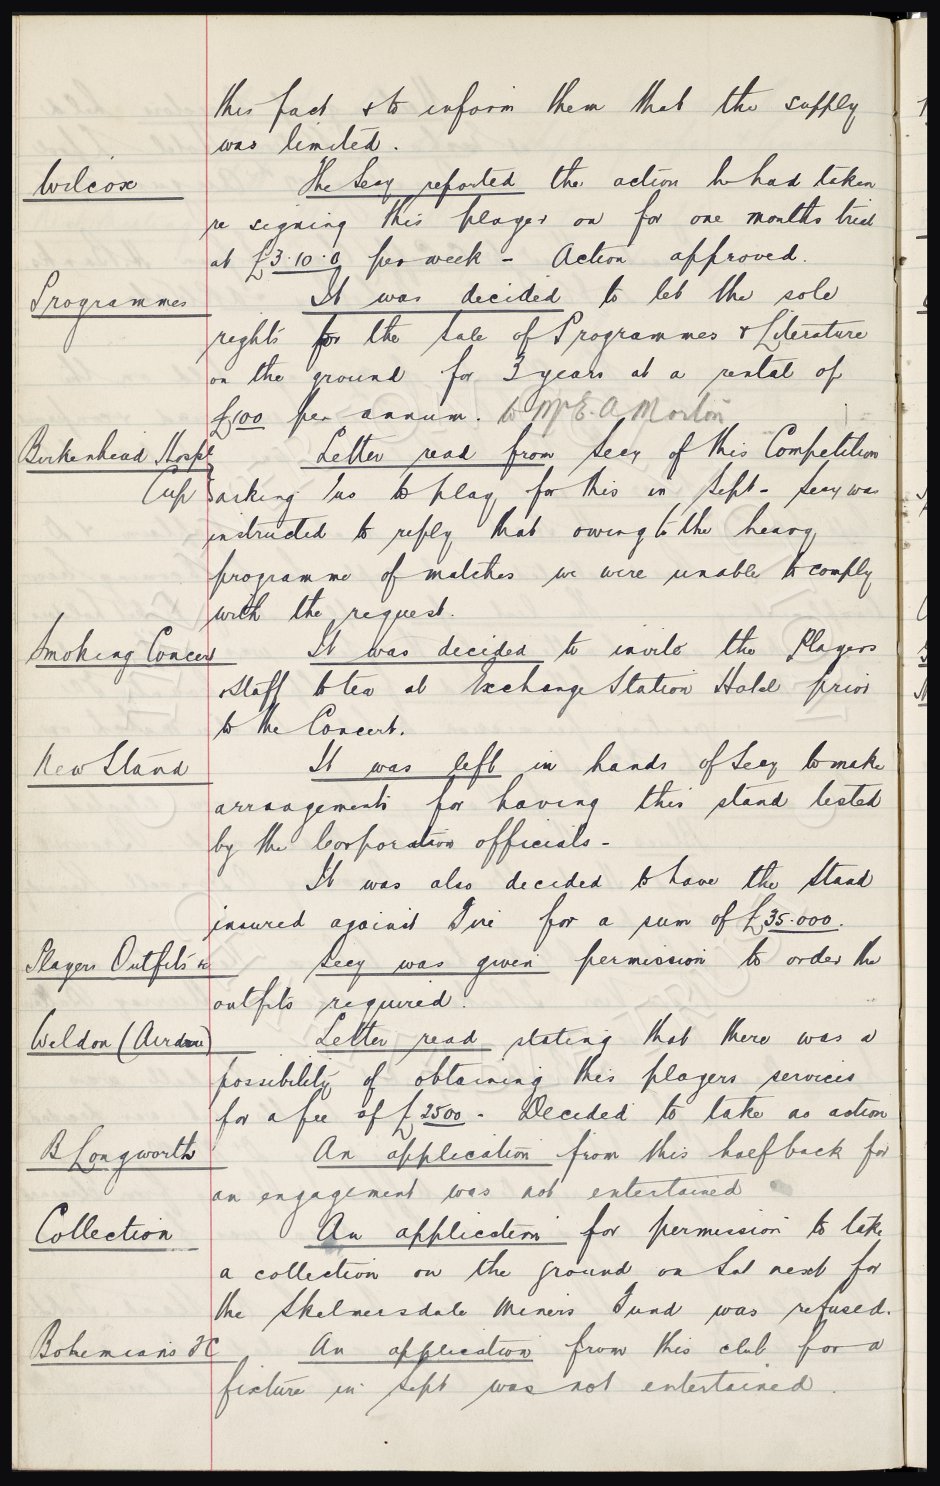 this fact & to inform them that the supply
was limited.
Wilcox The Secy reported the action he had taken
re signing this player on for one months trial
at £3.10.0 per week - Action approved.
Programmes It was decided to let the sole
rights for the sale of Programmes & Literature
on the ground for 3 years at a rental of
£100 per annum. to Mr E. A Morton
Birkenhead Hospl Letter read from Secy of this Competition
Cup asking us to play for this in Sept - Secy was
instructed to reply that owing to the heavy
programme of matches we were unable to comply
with the request.
Smoking Concert It was decided to invite the Players
& Staff to tea at Exchange Station Hotel prior
to the Concert.
New Stand It was left in hands of Secy to make
arrangements for having this stand tested
by the Corporation officials -
It was also decided to have the Stand
insured against Fire for a sum of £35.000.
Players Outfits &c Secy was given permission to order the
outfits required.
Weldon (Airdrie) Letter read stating that there was a
possibility of obtaining this players services
for a fee of £2500 - Decided to take no action
B Longworth An application from this half back for
an engagement was not entertained
Collection An application for permission to take
a collection on the ground on Sat next for
the Skelmersdale Miners Fund was refused.
Bohemians FC An application from this club for a
fixture in Sept was not entertained.